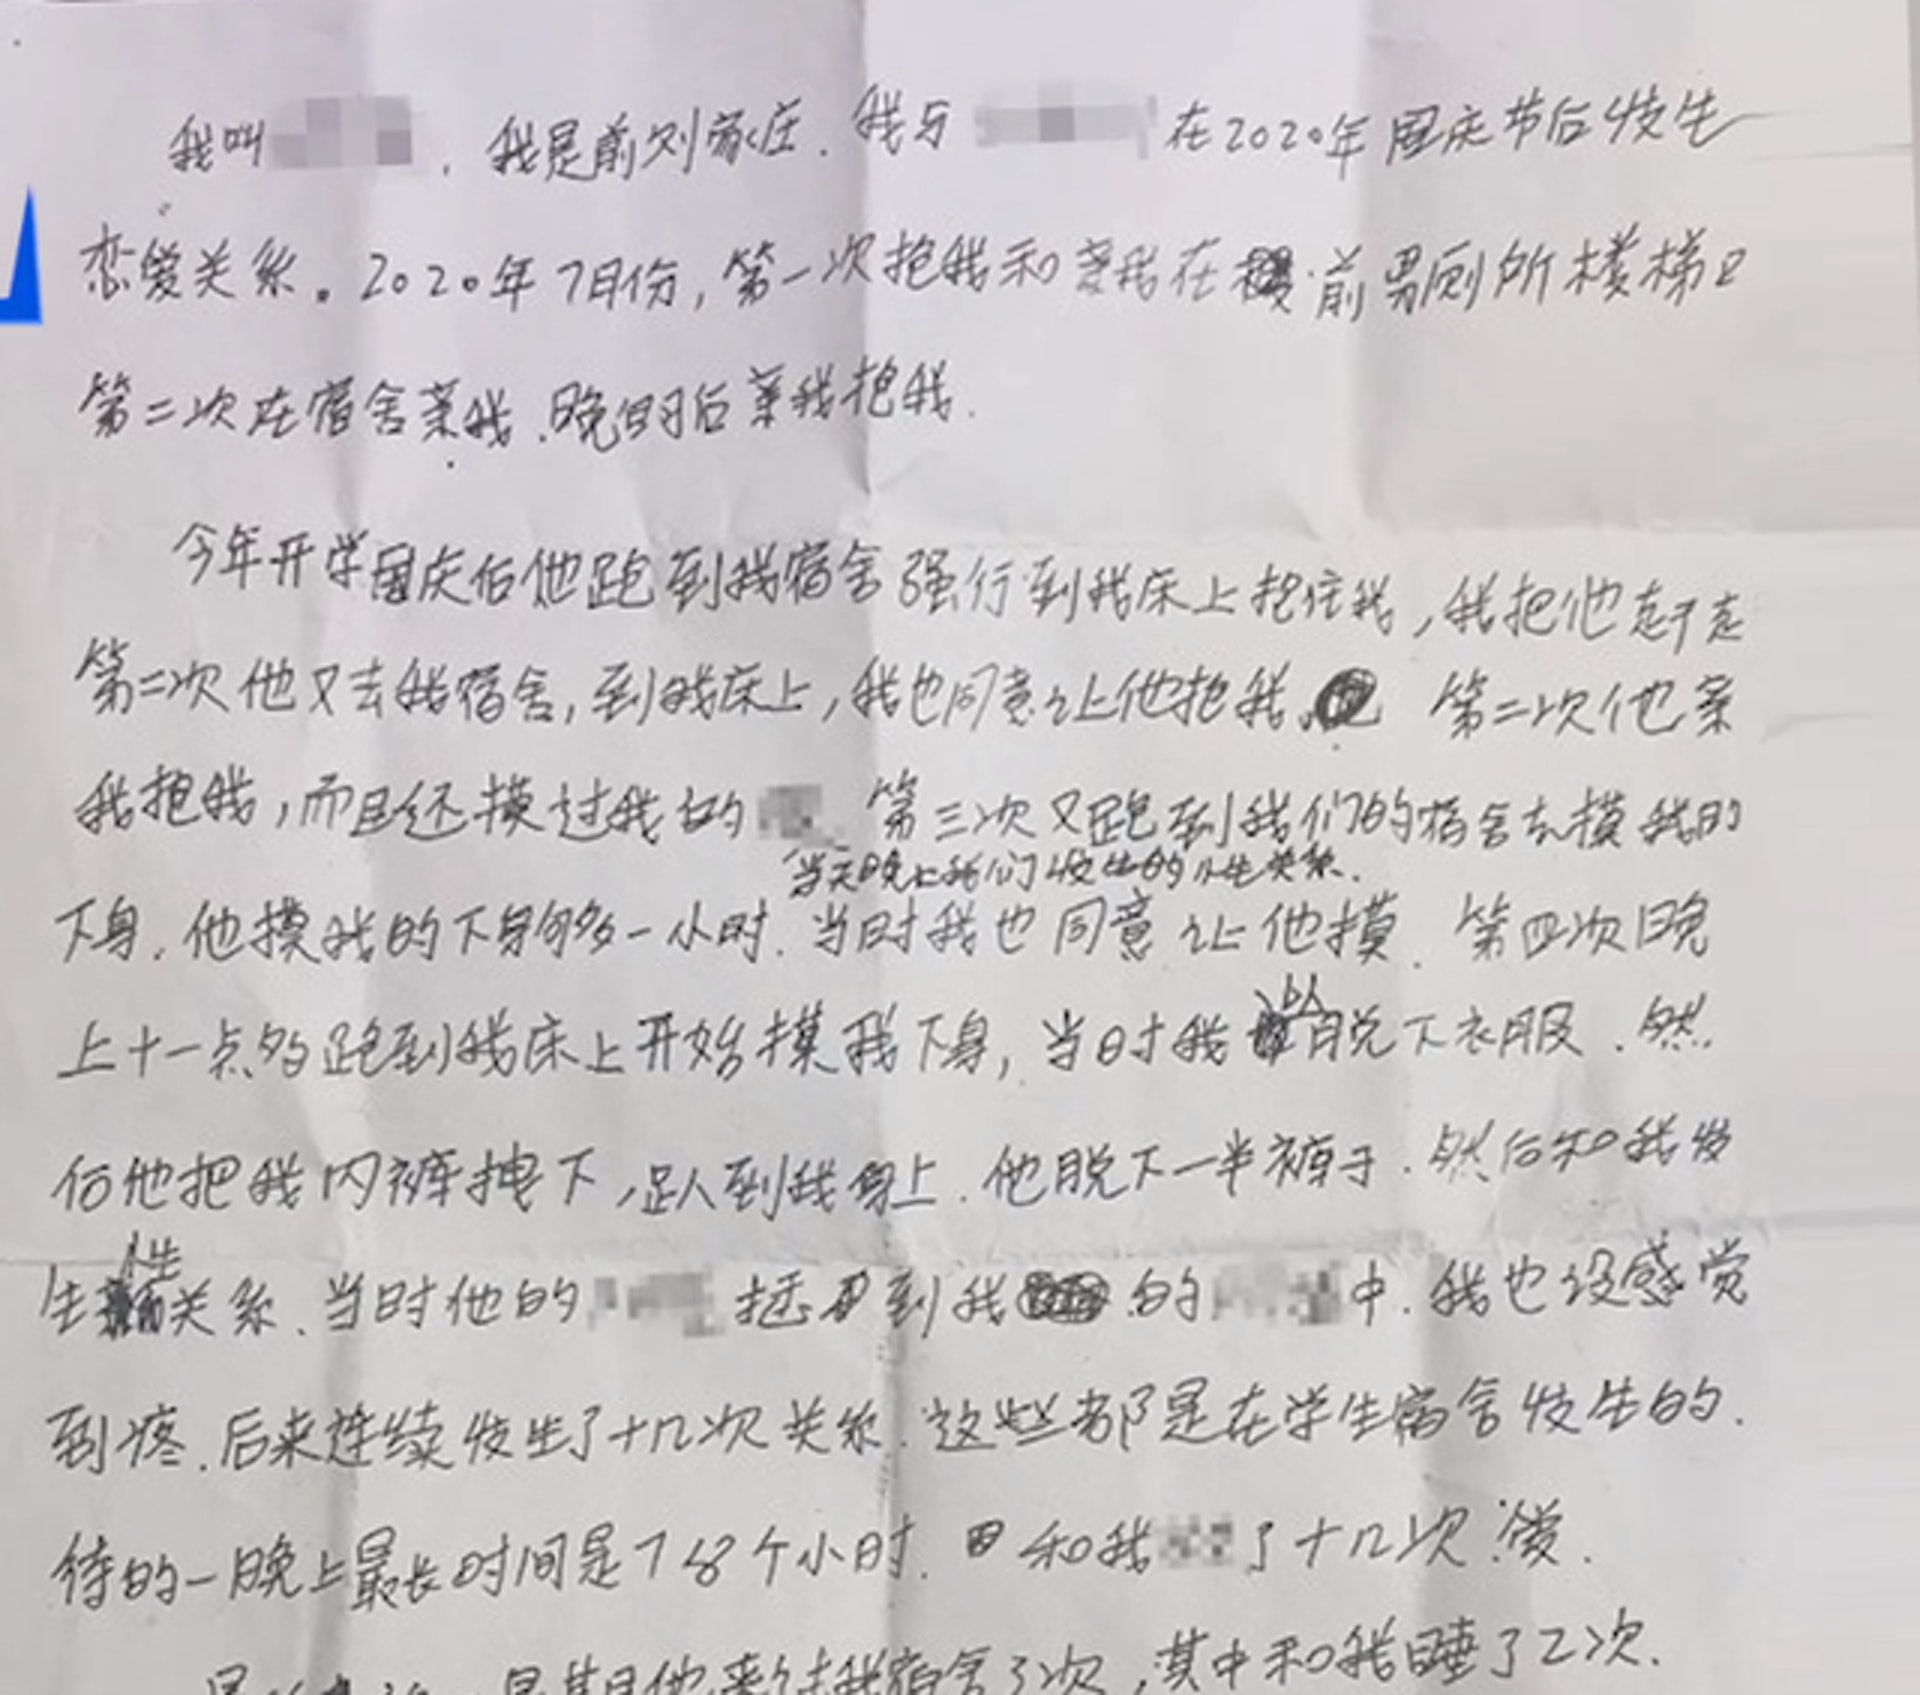 我叫 ，我是前刘家庄．我与 在2020年国庆节后发生
恋爱关系。2020年7月份，第一次抱我和亲我在 前男厕所楼梯
第二次在宿舍亲我．晚 后亲我抱我．
今年开学国庆后他跑到我宿舍强行到我床上抱住我，我把他 走
第二次他又去我宿舍，到我床上，我也同意让他抱我． 第二次他亲
我抱我，而且还摸过我的 第三次又跑到我们的宿舍去摸我的
当天晚上我们发生的性关系．
下身．他摸我的下身 多一小时．当时我也同意让他摸．第四次晚
上十一点多跑到我床上开始摸我下身，当时我 脱下衣服．然
后他把我内裤拽下，趴到我身上．他脱下一半裤子．然后和我发
性
生 关系．当时他的 到我 的 中．我也没感觉
到疼．后来连续发生了十几次关系．这些都是在学生宿舍发生的．
待的一晚上最长时间是7 8个小时． 和我 了十几次爱．
他 我宿舍3次，其中和我睡了2次．